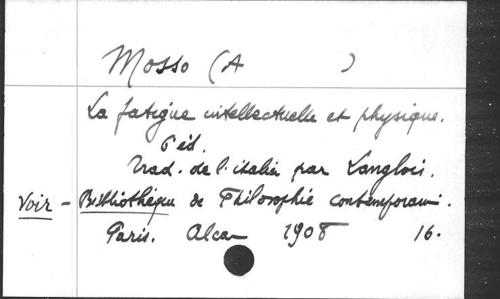 Mosso (A )
La fatigue intellectuelle et physique.
6 éd.
Trad. de l'italien par Langlois.
Voir - Bibliothèque de Philosophie contemporain.
Paris. Alcan 1908 16.